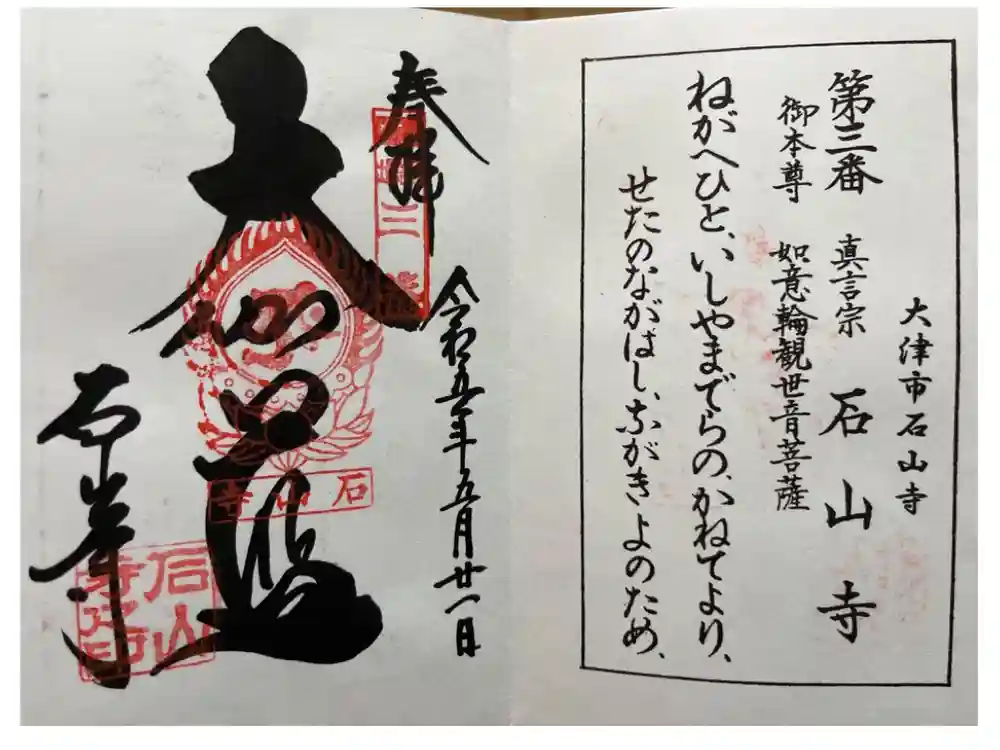 大津市石山寺
第三番 真言宗 石山寺
御本尊 如意輪観世音菩薩
ねがへひと、いしやまでらの、かねてより、
せたのながはし、ながきよのため、
奉拝
令和五年五月廿一日
大伽藍
石山寺
石山寺
石山寺之印